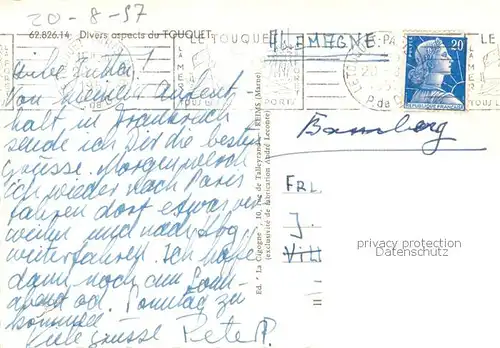 20-8-57
62.826.14 Divers aspects du TOUQUET
LE TOUQUET-PA
ALLEMAGNE
20
POSTES
REPUBLIQUE FRANÇAISE
LA
MER
P. de C
Liebe Jutta!
Von meinem Aufent
halt in Frankreich
sende ich Dir die besten
Grüsse. Morgen werde
ich wieder nach Paris
fahren dort etwas ver
weilen und nach
weiterfahren. Ich hoffe
dann noch am Sonn-
abend od. Sonntag zu
kommen
Viele Grüsse Peter
Ed. "La Cigogne", 10, rue de Talleyrand - REIMS (Marne)
(exclusivité de fabrication André Leconte)
Bamberg
FRL.
J.
privacy protection
Datenschutz